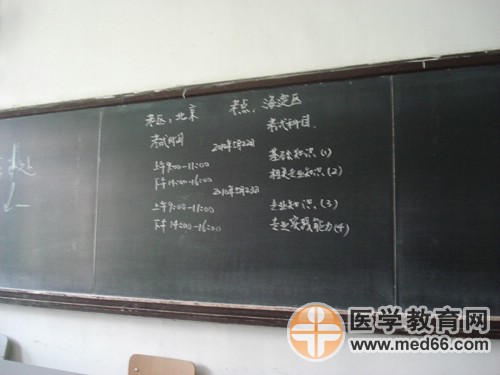 考区：北京 考点：海淀区
考试时间 考试科目
2010年5月22日
上午9:00-11:00 基础知识（1）
下午14:00-16:00 相关专业知识（2）
2010年5月23日
上午9:00-11:00 专业知识（3）
下午14:00-16:00 专业实践能力（4）
医学教育网
www.med66.com